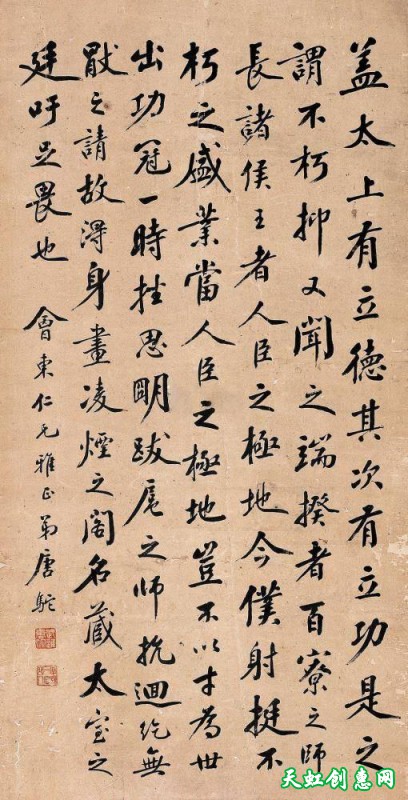 蓋太上有立德其次有立功是之
謂不朽抑又聞之端揆者百寮之師
長諸侯王者人臣之極地今僕射挺不
朽之盛業當人臣之極地豈不以才為世
出功冠一時挫思明跋扈之師抗迴紇無
厭之請故得身畫凌煙之閣名藏太室之
廷吁足畏也
會東仁兄雅正 弟唐駝
天虹创意网